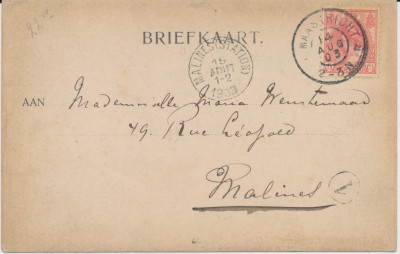 BRIEFKAART.
MAASTRICHT
14
AUG
03
2-3N
MALINES (STATION)
15
AOUT
1-2
1903
AAN Mademoiselle Maria
49. Rue Léopold
Malines